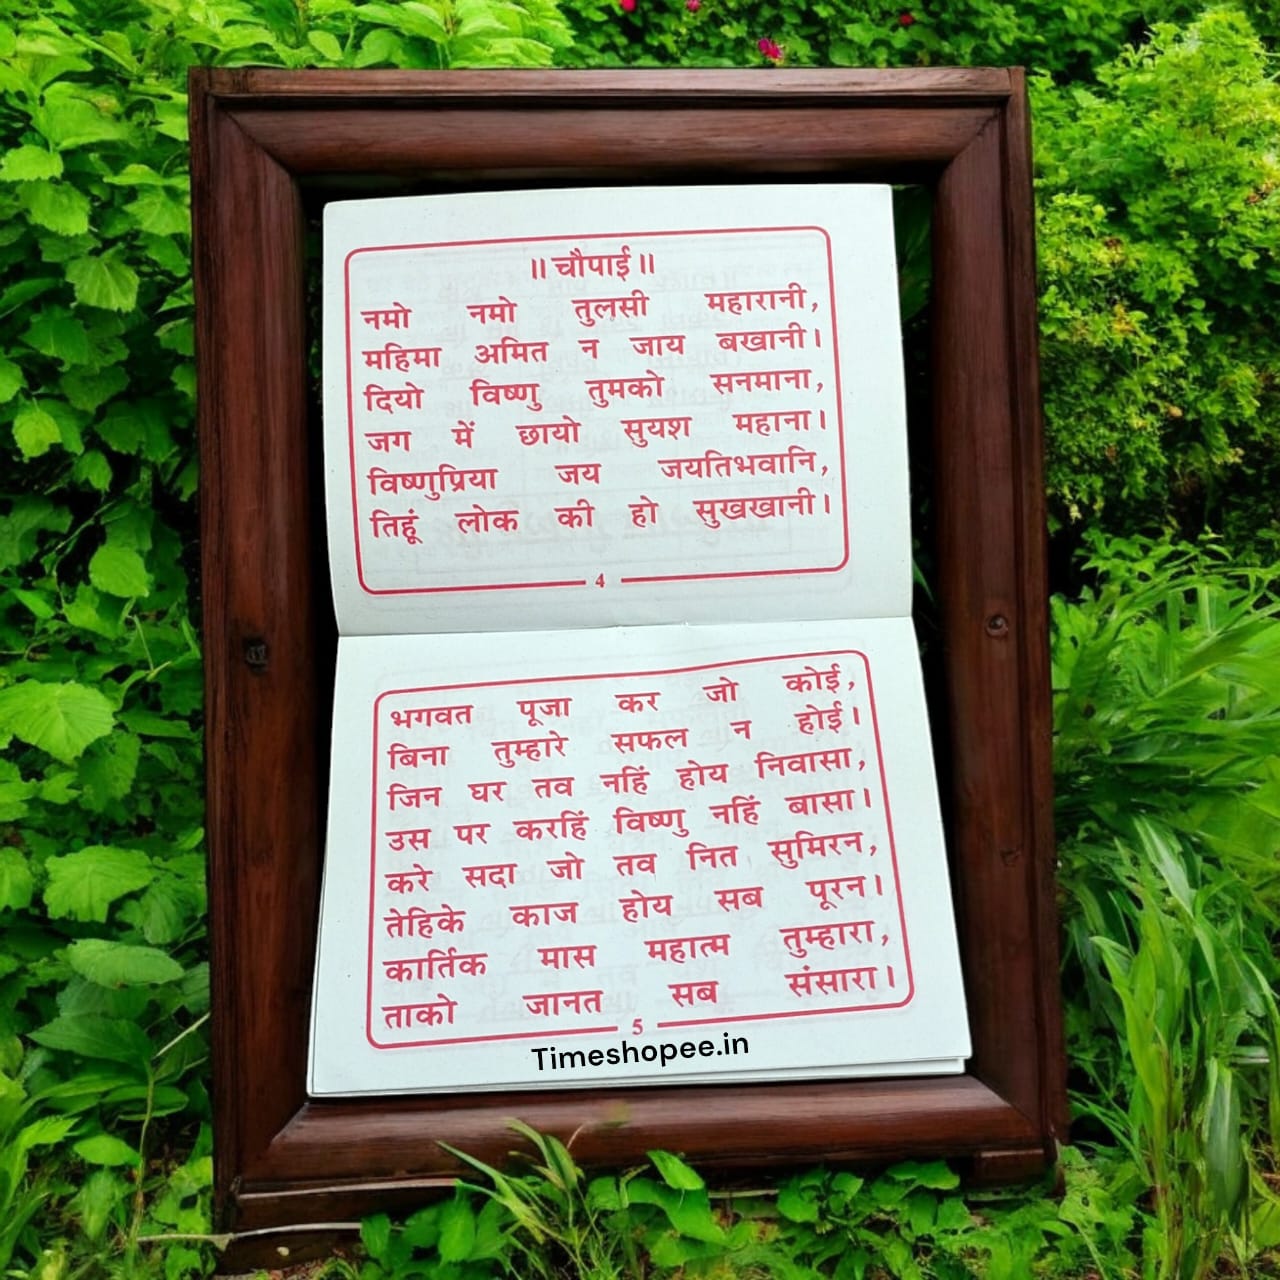 ॥ चौपाई ॥
नमो नमो तुलसी महारानी,
महिमा अमित न जाय बखानी।
दियो विष्णु तुमको सनमाना,
जग में छायो सुयश महाना।
विष्णुप्रिया जय जयतिभवानि,
तिहूं लोक की हो सुखखानी।
4
भगवत पूजा कर जो कोई,
बिना तुम्हारे सफल न होई।
जिन घर तव नहिं होय निवासा,
उस पर करहिं विष्णु नहिं बासा।
करे सदा जो तव नित सुमिरन,
तेहिके काज होय सब पूरन।
कार्तिक मास महात्म तुम्हारा,
ताको जानत सब संसारा।
5
Timeshopee.in